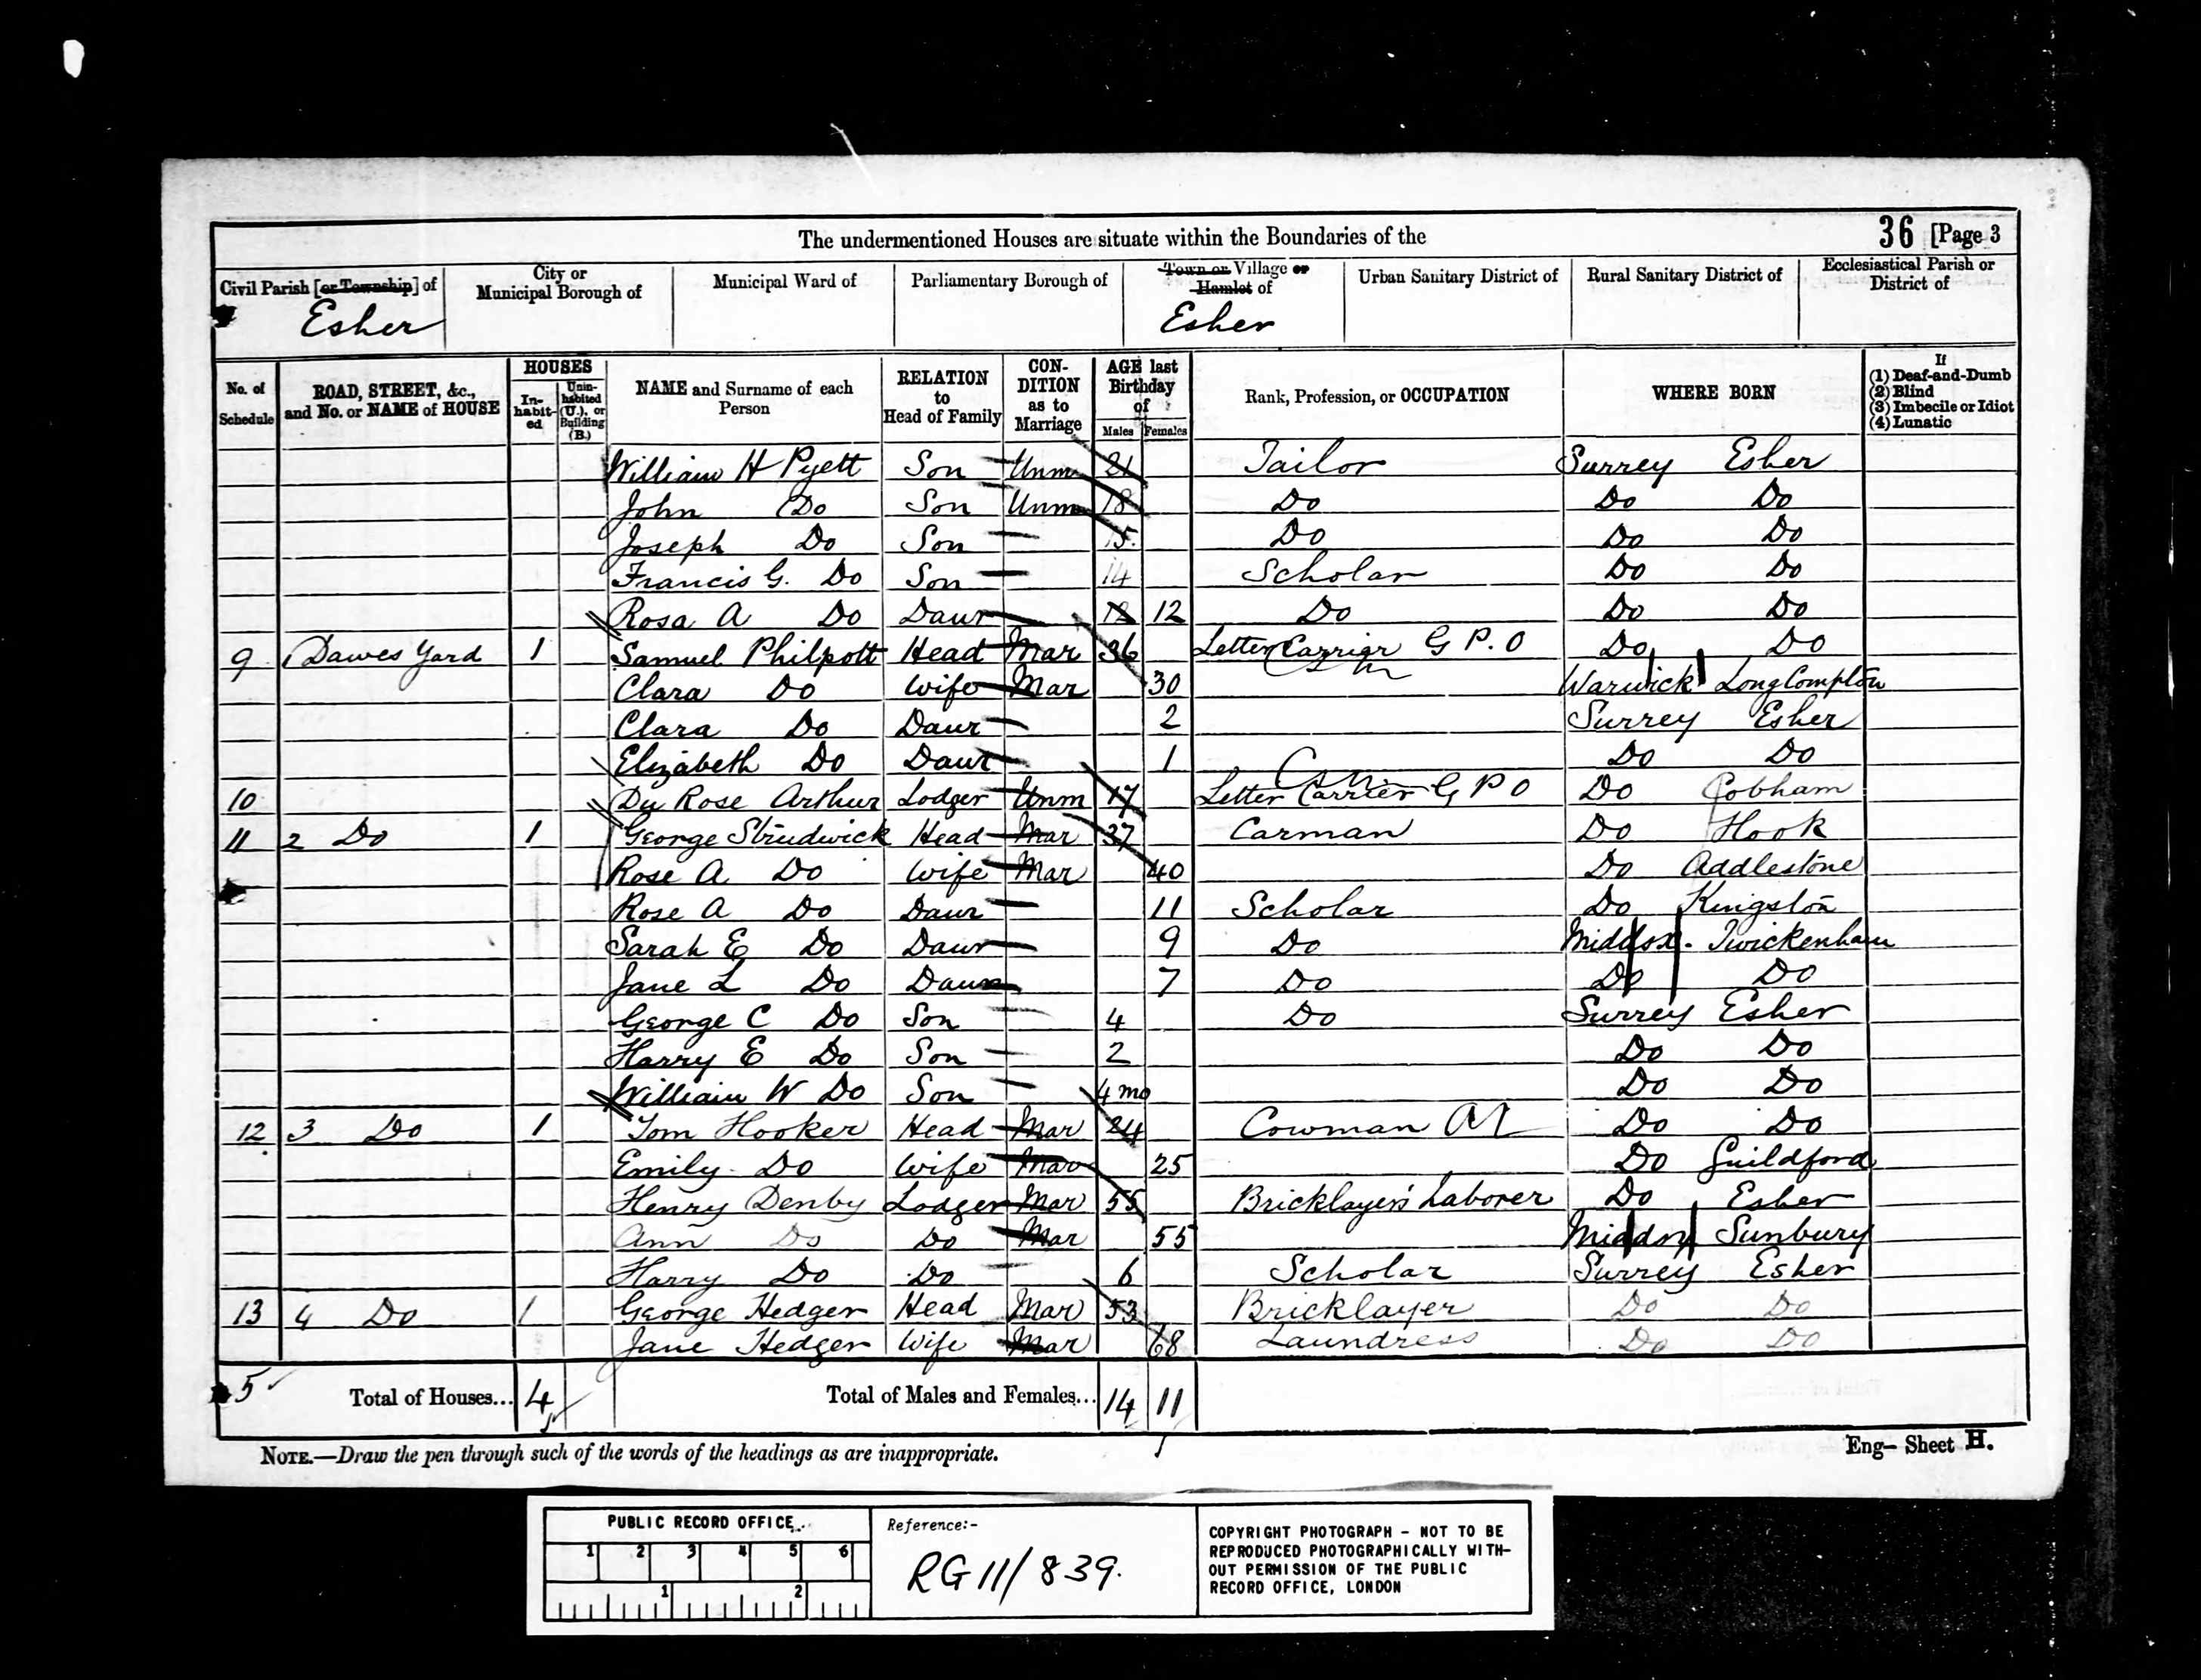 The undermentioned Houses are situate within the Boundaries of the 36 [Page 3
Civil Parish [or Township] of City or Municipal Borough of Municipal Ward of Parliamentary Borough of Town or Village or Hamlet of Urban Sanitary District of Rural Sanitary District of Ecclesiastical Parish or District of
Esher Esher
No. of Schedule ROAD, STREET, &c., and No. or NAME of HOUSE HOUSES In-habit-ed Unin-habited (U.), or Building (B.) NAME and Surname of each Person RELATION to Head of Family CON-DITION as to Marriage AGE last Birthday of Males Females Rank, Profession, or OCCUPATION WHERE BORN If (1) Deaf-and-Dumb (2) Blind (3) Imbecile or Idiot (4) Lunatic
William H Pyett Son Unm 21 Tailor Surrey Esher
John Do Son Unm 18 Do Do Do
Joseph Do Son 15 Do Do Do
Francis G. Do Son 14 Scholar Do Do
Rosa A Do Daur 12 12 Do Do Do
9 1 Dawes Yard 1 Samuel Philpott Head Mar 36 Letter Carrier G P.O Do Do
Clara Do Wife Mar 30 Warwick Long Compton
Clara Do Daur 2 Surrey Esher
Elizabeth Do Daur 1 Do Do
10 Du Rose Arthur Lodger Unm 17 Letter Carrier G P O Do Cobham
11 2 Do 1 George Strudwick Head Mar 37 Carman Do Hook
Rose A Do Wife Mar 40 Do Addlestone
Rose A Do Daur 11 Scholar Do Kingston
Sarah E Do Daur 9 Do Middsx. Twickenham
Jane L Do Daur 7 Do Do Do
George C Do Son 4 Do Surrey Esher
Harry E Do Son 2 Do Do
William W Do Son 4 mo Do Do
12 3 Do 1 Tom Hooker Head Mar 24 Cowman Do Do
Emily Do Wife Mar 25 Do Guildford
Henry Denby Lodger Mar 55 Bricklayers' Laborer Do Esher
Ann Do Do Mar 55 Middsx Sunbury
Harry Do Do 6 Scholar Surrey Esher
13 4 Do 1 George Hedger Head Mar 53 Bricklayer Do Do
Jane Hedger Wife Mar 68 Laundress Do Do
5 Total of Houses... 4 Total of Males and Females... 14 11
NOTE.—Draw the pen through such of the words of the headings as are inappropriate. Eng- Sheet H.
PUBLIC RECORD OFFICE
1 2 3 4 5 6
1 2
Reference:-
RG 11/839.
COPYRIGHT PHOTOGRAPH - NOT TO BE
REPRODUCED PHOTOGRAPHICALLY WITH-
OUT PERMISSION OF THE PUBLIC
RECORD OFFICE, LONDON